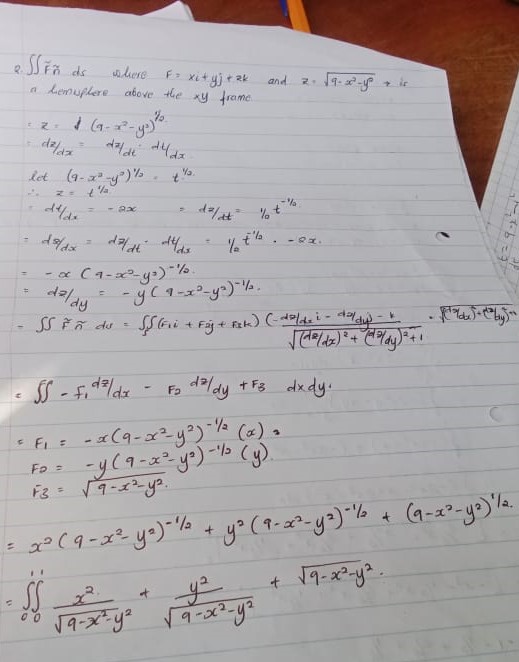 2. ∬ F̃ ñ ds where F = xi + yj + zk and z = √9-x²-y² is
a hemisphere above the xy frame
= z = (9-x²-y²)^1/2
= dz/dx = dz/dt · dt/dx
let (9-x²-y²)^1/2 = t^1/2
∴ z = t^1/2
= dt/dx = -2x = dz/dt = 1/2 t^-1/2
= dz/dx = dz/dt · dt/dx = 1/2 t^-1/2 · -2x.
= -x (9-x²-y²)^-1/2
= dz/dy = -y (9-x²-y²)^-1/2.
= ∬ F̃ ñ ds = ∬ (F1i + F2j + F3k) (-dz/dx i - dz/dy) - k / √(dz/dx)² + (dz/dy)² + 1 · √(dz/dx)² + (dz/dy)² + 1
= ∬ - F1 dz/dx - F2 dz/dy + F3 dxdy.
= F1 = -x(9-x²-y²)^-1/2 (x)
F2 = -y(9-x²-y²)^-1/2 (y)
F3 = √9-x²-y².
= x²(9-x²-y²)^-1/2 + y²(9-x²-y²)^-1/2 + (9-x²-y²)^1/2.
= ∬ 1 1 0 0 x²/√9-x²-y² + y²/√9-x²-y² + √9-x²-y².